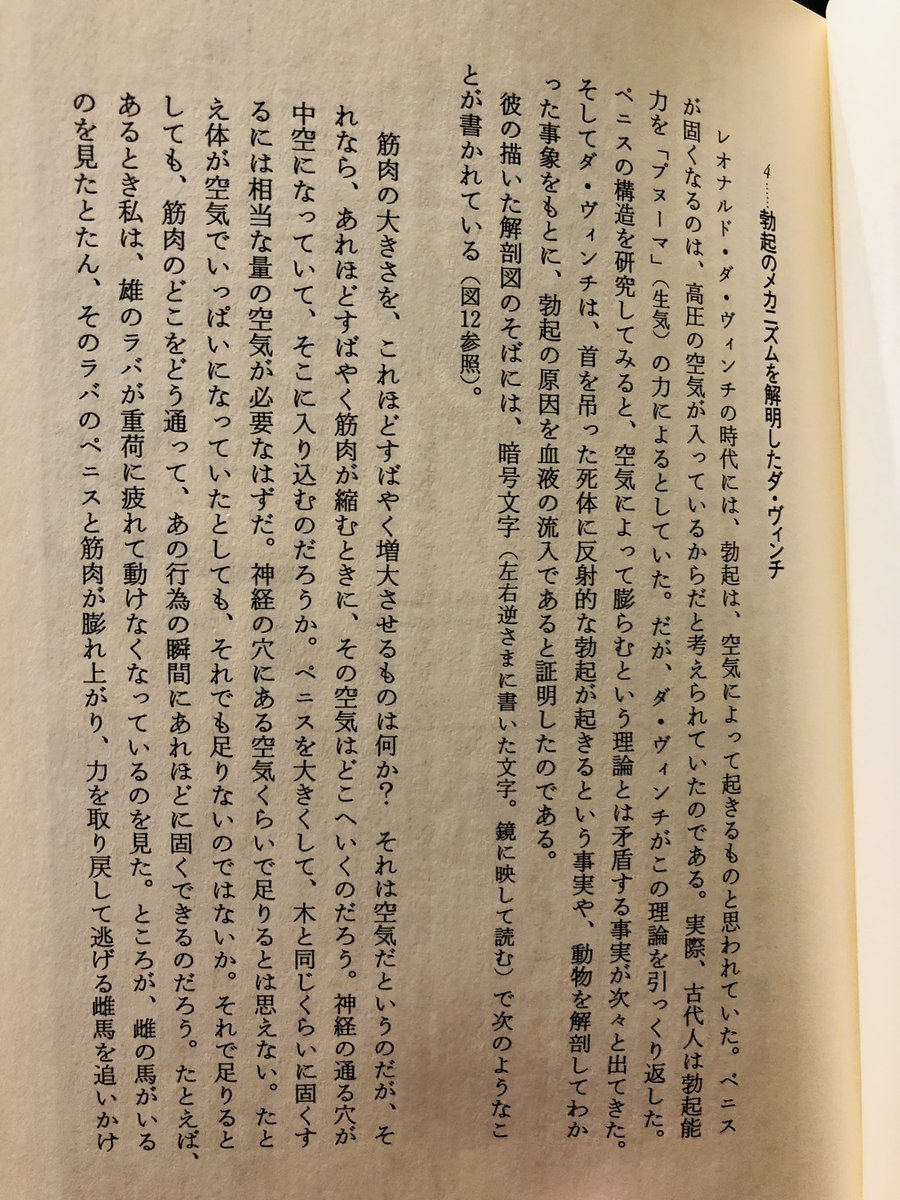 4……勃起のメカニズムを解明したダ・ヴィンチ
レオナルド・ダ・ヴィンチの時代には、勃起は、空気によって起きるものと思われていた。ペニス
が固くなるのは、高圧の空気が入っているからだと考えられていたのである。実際、古代人は勃起能
力を「プヌーマ」(生気)の力によるとしていた。だが、ダ・ヴィンチがこの理論を引っくり返した。
ペニスの構造を研究してみると、空気によって膨らむという理論とは矛盾する事実が次々と出てきた。
そしてダ・ヴィンチは、首を吊った死体に反射的な勃起が起きるという事実や、動物を解剖してわか
った事象をもとに、勃起の原因を血液の流入であると証明したのである。
彼の描いた解剖図のそばには、暗号文字(左右逆さまに書いた文字。鏡に映して読む)で次のようなこ
とが書かれている(図12参照)。
筋肉の大きさを、これほどすばやく増大させるものは何か? それは空気だというのだが、そ
れなら、あれほどすばやく筋肉が縮むときに、その空気はどこへいくのだろう。神経の通る穴が
中空になっていて、そこに入り込むのだろうか。ペニスを大きくして、木と同じくらいに固くす
るには相当な量の空気が必要なはずだ。神経の穴にある空気くらいで足りるとは思えない。たと
え体が空気でいっぱいになっていたとしても、それでも足りないのではないか。それで足りると
しても、筋肉のどこをどう通って、あの行為の瞬間にあれほどに固くできるのだろう。たとえば、
あるとき私は、雄のラバが重荷に疲れて動けなくなっているのを見た。ところが、雌の馬がいる
のを見たとたん、そのラバのペニスと筋肉が膨れ上がり、力を取り戻して逃げる雌馬を追いかけ